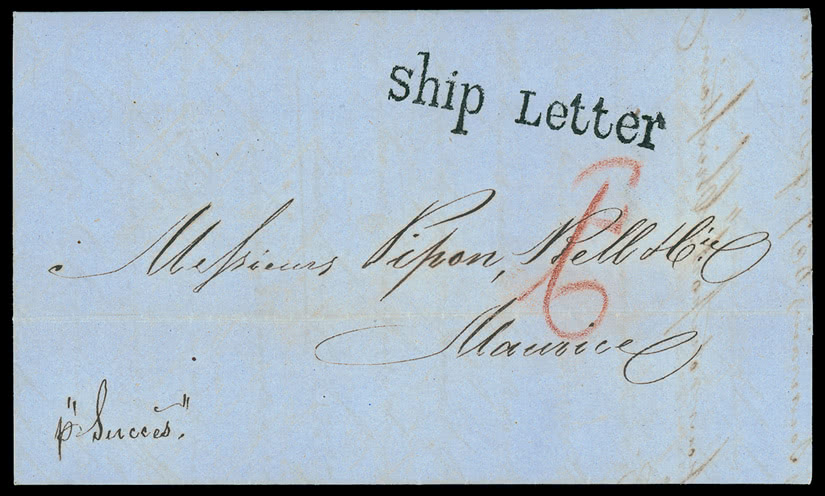 ship Letter
6
Messieurs Pipon, Bell & Cie
Maurice
p "Succès".